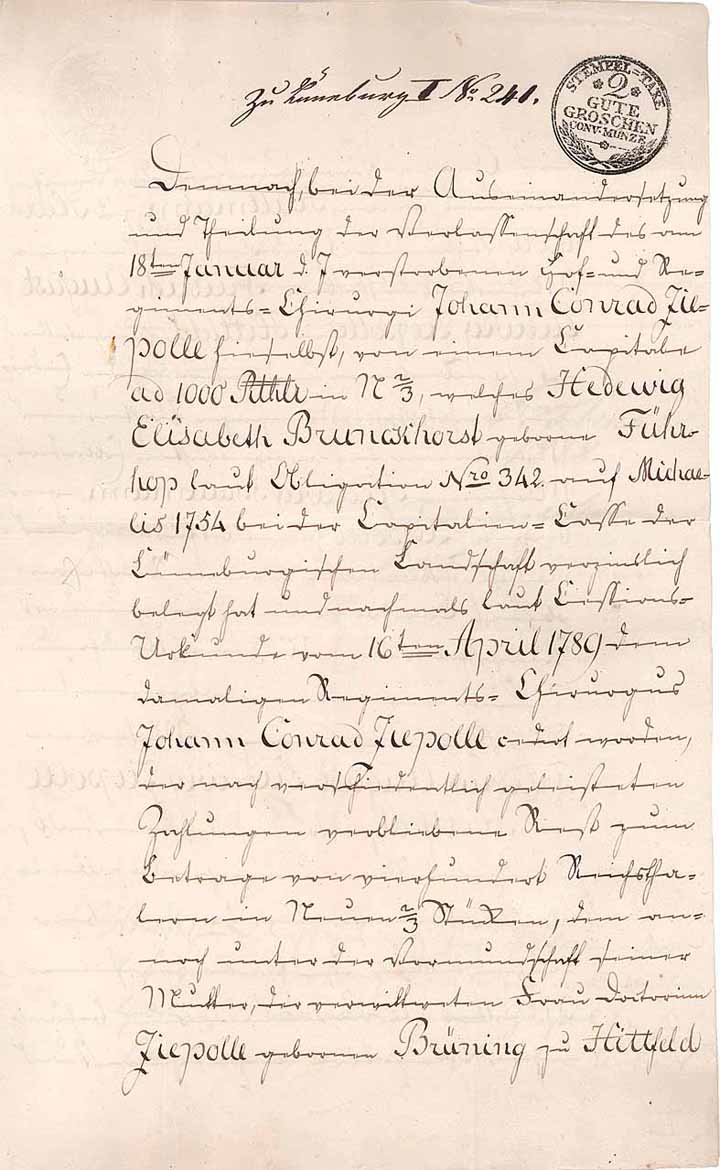 Zu Lüneburg I No. 241.
STEMPEL=TAXE
2
GUTE
GROSCHEN
CONV:MUNZE
Demnach, bei der Auseinandersetzung
und Theilung der Verlassenschaft des am
18ten Januar d. J verstorbenen Hof= und Re=
giments=Chirurgi Johann Conrad Zie=
polle hieselbst, von einem Capitale
ad 1000 Rthlr in N 2/3, welches Hedewig
Elisabeth Brunckhorst geborne Führ=
hop laut Obligation Nro 342. auf Michae=
lis 1754 bei der Capitalien=Casse der
Lüneburgischen Landschaft verzinslich
belegt hat und nachmals laut Cessions=
Urkunde vom 16ten April 1789 dem
damaligen Regiments=Chirurgus
Johann Conrad Ziepolle cedirt worden,
der nach verschiedentlich geleisteten
Zahlungen verbliebene Rest zum
Betrage von vierhundert Reichstha=
lern in Neuen 2/3 Stücken, dem an=
noch unter der Vormundschaft seiner
Mutter, der verwittweten Frau Doctorinn
Ziepolle gebornen Brüning zu Hittfeld